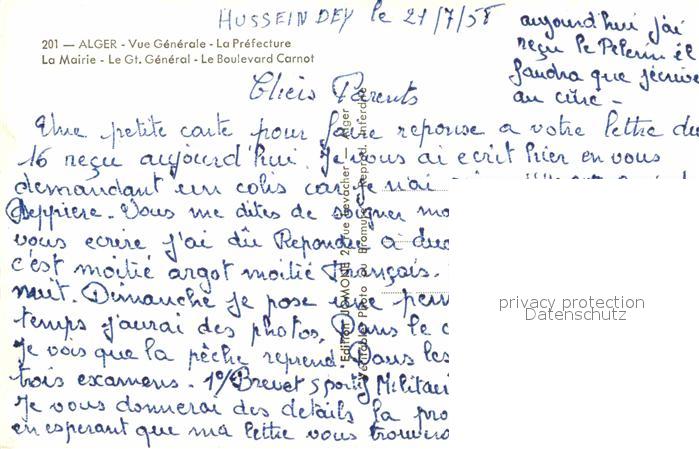 HUSSEIN DEY le 21/7/58
aujourd'hui j'ai
reçu le Pelerin il
faudra que j'écrive
au curé -
201 — ALGER - Vue Générale - La Préfecture
La Mairie - Le Gt. Général - Le Boulevard Carnot
Chers Parents
Une petite carte pour faire reponse a votre lettre du
16 reçu aujourd'hui. Je vous ai ecrit hier en vous
demandant un colis car je n'ai
Vous me dites de soigner
vous ecrire j'ai dû Repondre a
c'est moitié argot moitié Français.
nuit. Dimanche je pose une
temps j'aurai des photos. Dans le
Je vois que la pêche reprend. Dans les
trois examens. 1º/Brevet sportif Militai
Je vous donnerai des details la pro
en esperant que ma lettre vous trouvera
Edition JOMONE 2, rue Levacher — Alger
Véritable Photo au Bromure - Reprod. Interdite
privacy protection
Datenschutz